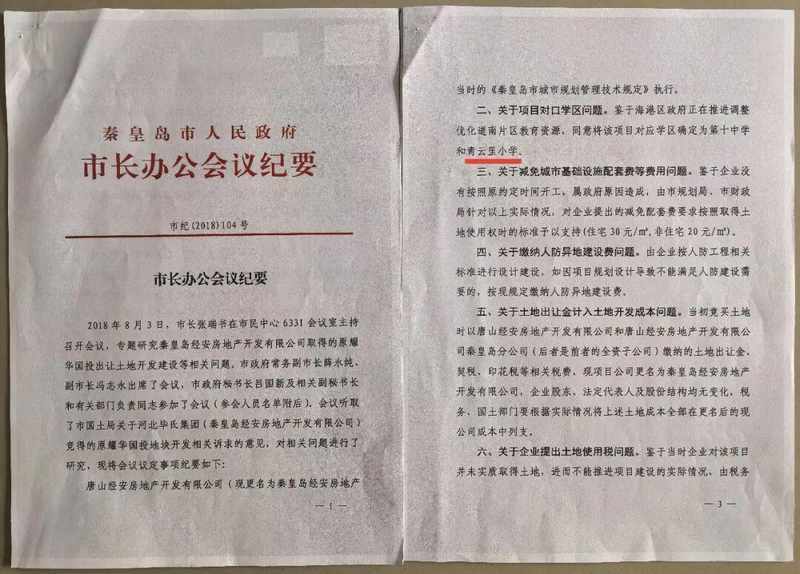 秦皇岛市人民政府
市长办公会议纪要
市纪(2018)104号
市长办公会议纪要
2018年8月3日，市长张瑞书在市民中心6331会议室主持
召开会议，专题研究秦皇岛经安房地产开发有限公司取得的原耀
华国投出让土地开发建设等相关问题。市政府常务副市长薛永纯、
副市长冯志永出席了会议，市政府秘书长吕国新及相关副秘书长
和有关部门负责同志参加了会议（参会人员名单附后）。会议听取
了市国土局关于河北华氏集团（秦皇岛经安房地产开发有限公司）
竞得的原耀华国投地块开发相关诉求的意见，对相关问题进行了
研究，现将会议议定事项纪要如下：
唐山经安房地产开发有限公司（现更名为秦皇岛经安房地产
— 1 —
当时的《秦皇岛市城市规划管理技术规定》执行。
二、关于项目对口学区问题。鉴于海港区政府正在推进调整
优化道南片区教育资源，同意将该项目对应学区确定为第十中学
和青云里小学。
三、关于减免城市基础设施配套费等费用问题。鉴于企业没
有按照原约定时间开工，属政府原因造成，由市规划局、市财政
局针对以上实际情况，对企业提出的减免配套费要求按照取得土
地使用权时的标准予以支持(住宅30元/㎡,非住宅20元/㎡)。
四、关于缴纳人防异地建设费问题。由企业按人防工程相关
标准进行设计建设，如因项目规划设计导致不能满足人防建设需
要的，按现规定缴纳人防异地建设费。
五、关于土地出让金计入土地开发成本问题。当初竞买土地
时以唐山经安房地产开发有限公司和唐山经安房地产开发有限公
司秦皇岛分公司（后者是前者的全资子公司）缴纳的土地出让金、
契税、印花税等相关税费，现项目公司更名为秦皇岛经安房地产
开发有限公司，企业股东、法定代表人及股份结构均无变化，税
务、国土部门要根据实际情况将上述土地成本全部在更名后的现
公司成本中列支。
六、关于企业提出土地使用税问题。鉴于当时企业对该项目
并未实质取得土地，进而不能推进项目建设的实际情况，由税务
— 3 —